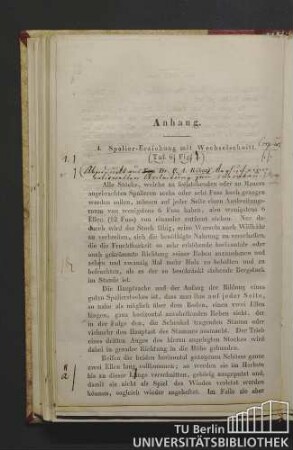 Anhang.
1. Spalier-Erziehung mit Wechselschnitt.
(Taf. 6, Fig.
Alle Stöcke, welche an freistehenden oder an Mauern
angebrachten Spalieren sechs oder acht Fuss hoch gezogen
werden sollen, müssen auf jeder Seite einen Ausbreitungs-
raum von wenigstens 6 Fuss haben, also wenigstens 6
Ellen (12 Fuss) von einander entfernt stehen. Nur da-
durch wird der Stock fähig, seine Wurzeln nach Willkühr
zu verbreiten, sich die benöthigte Nahrung zu verschaffen,
die die Feuchtigkeit so sehr erhöhende horizontale oder
auch gekrümmte Richtung seiner Reben anzunehmen und
selbst und zwanzig Mal mehr Holz zu behalten und zu
befruchten, als der so beschränkt stehende Bergstock
im Stande ist.
Die Hauptsache und der Anfang der Bildung eines
guten Spalierstockes ist, dass man ihm auf jeder Seite,
so nahe als möglich über dem Boden, einen zwei Ellen
langen, ganz horizontal auszulaufenden Reben zieht, der
in der Folge den, die Schenkel tragenden Stamm oder
vielmehr den Haupttheil des Stammes ausmacht. Der Trieb
eines dritten Auges des hierzu angelegten Stockes wird
dabei in gerader Richtung in die Höhe gebunden.
Treiben die beiden horizontal gezogenen Schösse ganze
zwei Ellen lang vollkommen; so werden sie im Herbste
bis zu dieser Länge verschnitten, gehörig ausgeputzt und,
damit sie nicht als Spiel des Windes verletzt werden
können, sogleich wieder angeheftet. Im Falle sie aber
TU Berlin
UNIVERSITÄTSBIBLIOTHEK